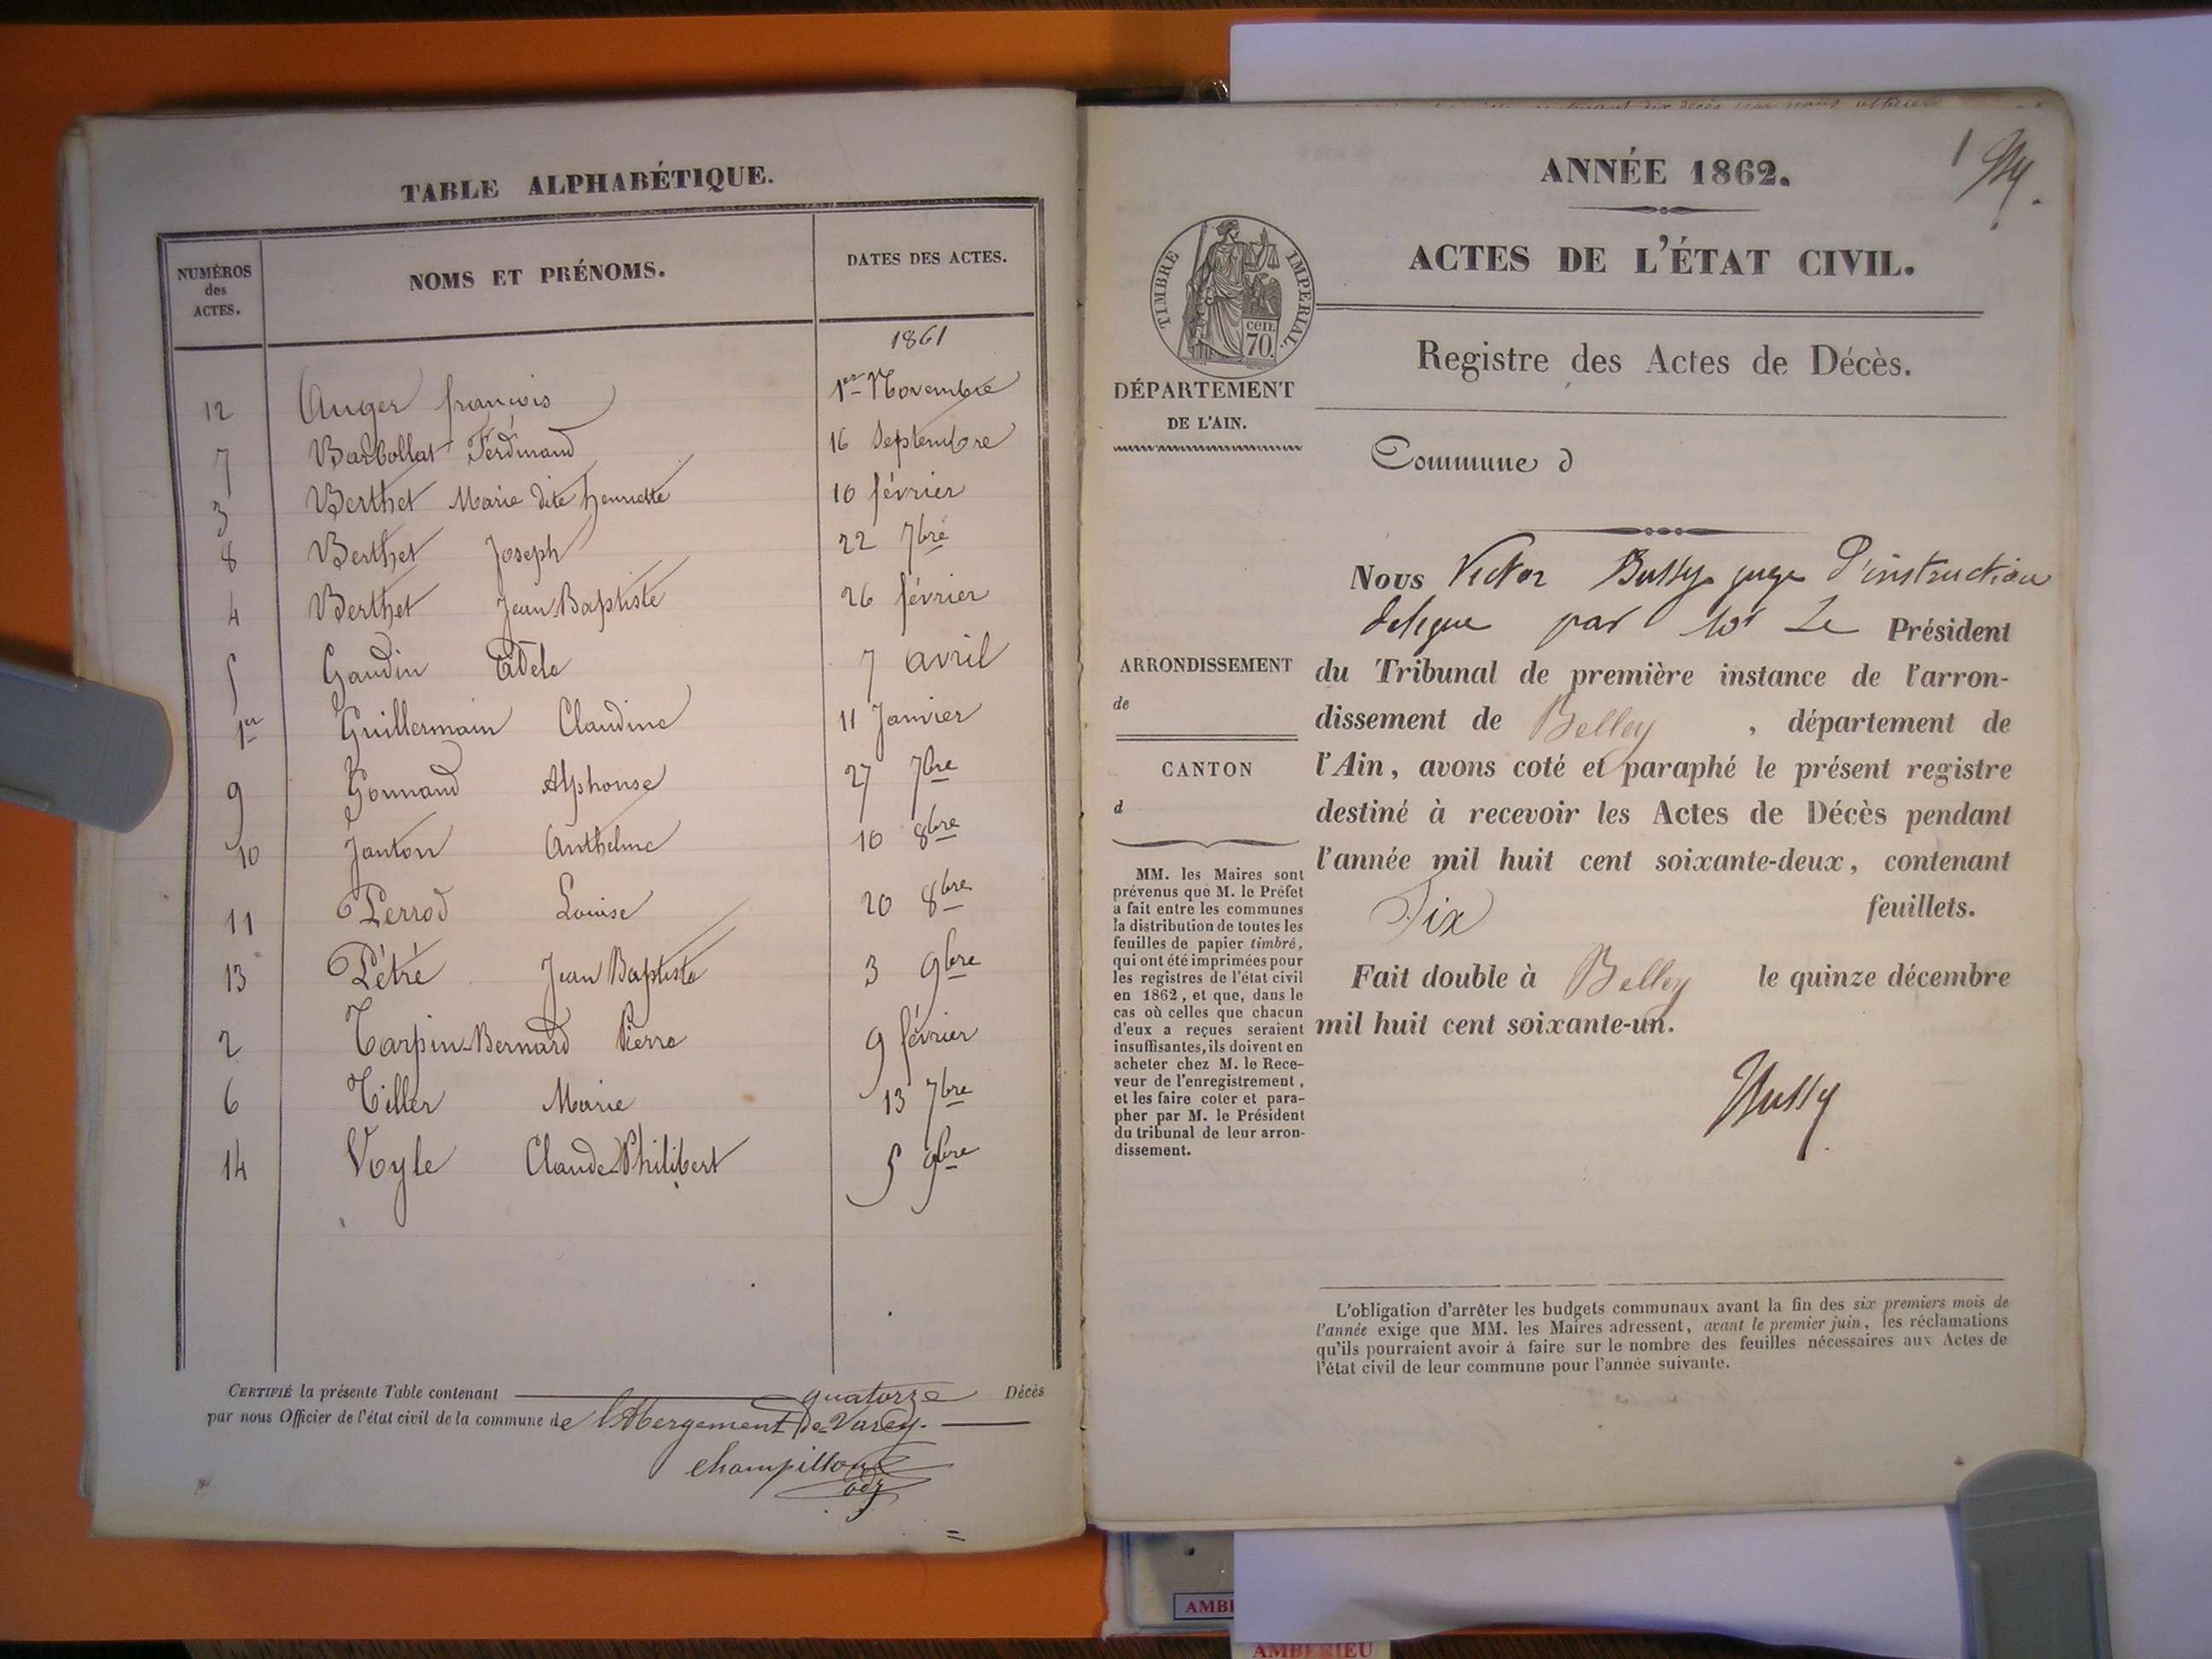 TABLE ALPHABÉTIQUE.
NUMÉROS des ACTES. NOMS ET PRÉNOMS. DATES DES ACTES.
1861
12 Auger françois 1er Novembre
7 Barbollat Ferdinand 16 Septembre
3 Berthet Marie dite henriette 10 février
8 Berthet Joseph 22 7bre
4 Berthet Jean Baptiste 26 février
5 Gaudin Adèle 7 avril
1er Guillermain Claudine 11 Janvier
9 Gonnand Alphonse 27 7bre
10 Janton Anthelme 10 8bre
11 Perrod Louise 20 8bre
13 Pétré Jean Baptiste 3 9bre
2 Tarpin-Bernard Pierre 9 février
6 Tiller Marie 13 7bre
14 Voyle Claude Philibert 5 9bre
CERTIFIÉ la présente Table contenant quatorze Décès
par nous Officier de l'état civil de la commune de l'Abergement-de-Varey.
Champillon
adj
1
ANNÉE 1862.
ACTES DE L'ÉTAT CIVIL.
TIMBRE IMPÉRIAL.
cen.
70.
Registre des Actes de Décès.
DÉPARTEMENT
DE L'AIN.
Commune d
Nous Victor Bussy juge d'instruction
délégué par Mr Le Président
du Tribunal de première instance de l'arron-
dissement de Belley, département de
l'Ain, avons coté et paraphé le présent registre
destiné à recevoir les Actes de Décès pendant
l'année mil huit cent soixante-deux, contenant
Six feuillets.
Fait double à Belley le quinze décembre
mil huit cent soixante-un.
Bussy
ARRONDISSEMENT
de
CANTON
d
MM. les Maires sont
prévenus que M. le Préfet
a fait entre les communes
la distribution de toutes les
feuilles de papier timbré,
qui ont été imprimées pour
les registres de l'état civil
en 1862, et que, dans le
cas où celles que chacun
d'eux a reçues seraient
insuffisantes, ils doivent en
acheter chez M. le Rece-
veur de l'enregistrement,
et les faire coter et para-
pher par M. le Président
du tribunal de leur arron-
dissement.
L'obligation d'arrêter les budgets communaux avant la fin des six premiers mois de
l'année exige que MM. les Maires adressent, avant le premier juin, les réclamations
qu'ils pourraient avoir à faire sur le nombre des feuilles nécessaires aux Actes de
l'état civil de leur commune pour l'année suivante.
AMBE
AMBERIEU